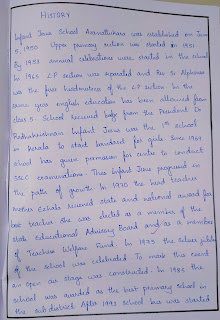 HISTORY
Infant Jesus School Aranattukara was established on June
5, 1950. Upper primary section was started on 1951.
By 1953 annual celebrations were started in the school
In 1965 L.P section was separated and Rev Sr Alphonse
was the first headmistress of the L.P section. In the
same year english education has been allowed from
class 5. School received help from the President Dr
Radhakrishnan. Infant Jesus was the 1st school
in Kerala to start for girls. June 1964
school has given permission for centre to conduct
SSLC examinations. Thus Infant Jesus progressed in
the paths of growth. In 1970 the head teacher
mother received state and national award for
best teacher. She was elected as a member of the
state Educational Advisory Board and as a member
of Teachers Welfare Fund. In 1975 the silver jubilee
of the school was celebrated. To mark this event
an open air stage was constructed. In 1985 the
school was awarded as the best primary school in
the sub district. After 1993 school bus was started